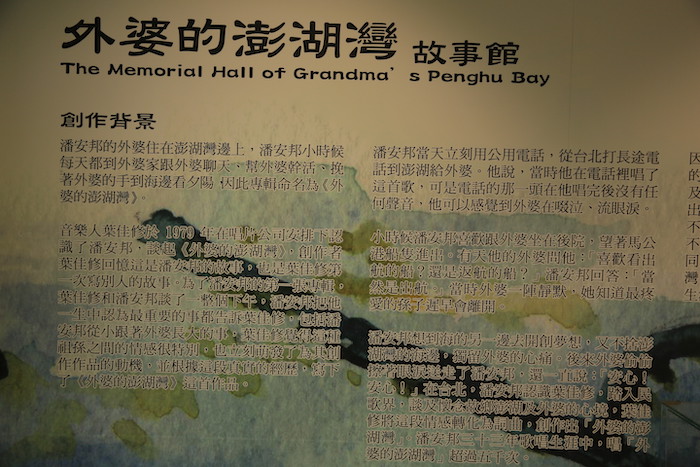 外婆的澎湖灣 故事館
The Memorial Hall of Grandma's Penghu Bay
創作背景
潘安邦的外婆住在澎湖灣邊上，潘安邦小時候
每天都到外婆家跟外婆聊天，幫外婆幹活，挽
著外婆的手到海邊看夕陽，因此專輯命名為《外
婆的澎湖灣》。
音樂人葉佳修於 1979 年在唱片公司安排下認
識了潘安邦，談起《外婆的澎湖灣》，創作者
葉佳修回憶這是潘安邦的故事，也是葉佳修第
一次寫別人的故事。為了潘安邦的第一張專輯，
葉佳修和潘安邦談了一整個下午，潘安邦把他
一生中認為最重要的事都告訴葉佳修，包括潘
安邦從小跟著外婆長大的事。葉佳修覺得這種
祖孫之間的情感很特別，也立刻而致了為其創
作作品的動機，並根據這段真實的經歷，寫下
了《外婆的澎湖灣》這首作品。
潘安邦當天立刻用公用電話，從台北打長途電
話到澎湖給外婆。他說，當時他在電話裡唱了
這首歌，可是電話的那一頭在他唱完後沒有任
何聲音，他可以感覺到外婆在啜泣、流眼淚。
小時候潘安邦常歡跟外婆坐在後院，望著馬公
港船隻進出。有天他的外婆問他：「喜歡看出
航的船？還是返航的船？」潘安邦回答：「當
然是出航」，當時外婆一陣靜默，她知道最疼
愛的孫子遲早會離開。
潘安邦想到海的另一邊去開創夢想，又不捨澎
湖灣的海邊，
著眼淚送走了潘安邦，還一直說：「安心！
安心！」在台北，潘安邦認識葉佳修，踏入民
歌界，談及
修將這段情感轉化為詞曲，創作出「外婆的澎
湖灣」。潘安邦三十三年歌唱生涯中，唱「外
婆的澎湖灣」超過五千次